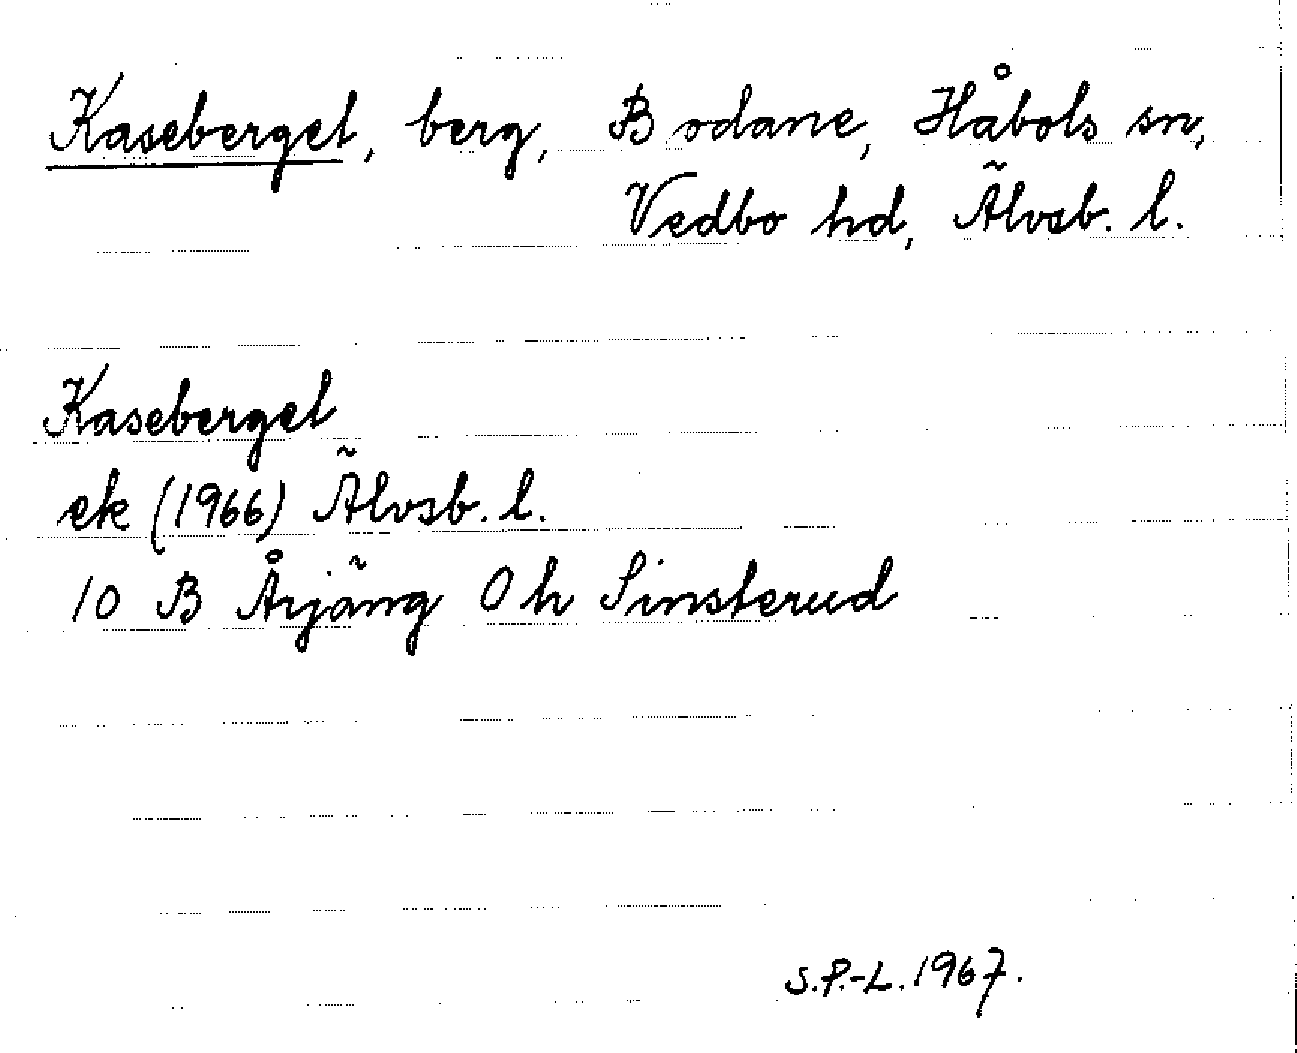 Kaseberget, berg, Bodane, Håbols sn,
Vedbo hd, Älvsb. l.
Kaseberget
ek (1966) Älvsb. l.
10 B Årjäng 0 h Sinsterud
S.P.-L. 1967.